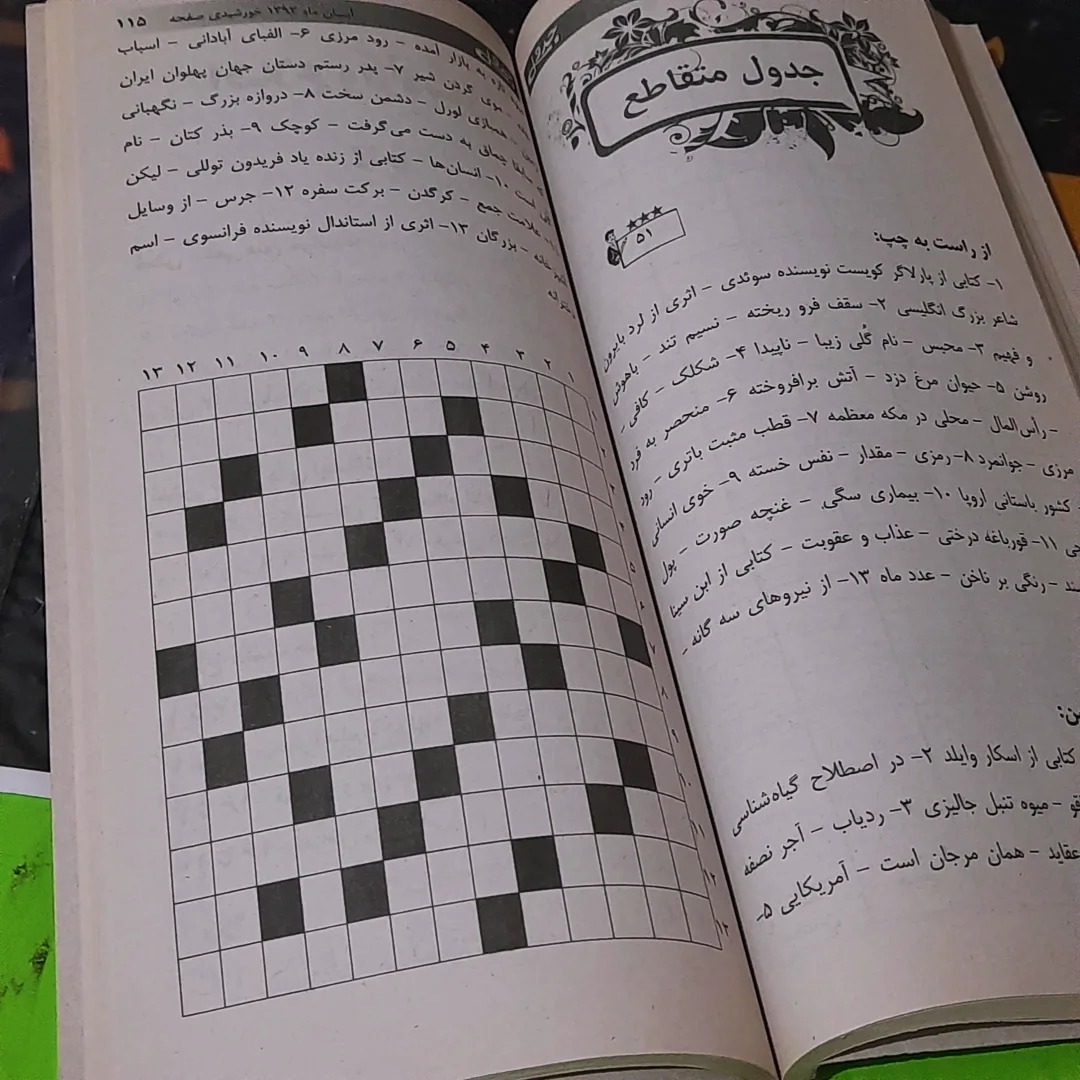 جدول متقاطع
۵۱
از راست به چپ:
۱- کتابی از پارلاگر کویست نویسنده سوئدی - اثری از لرد بایرون
شاعر بزرگ انگلیسی ۲- سقف فرو ریخته - نسیم تند - باهوش
و فهیم ۳- محبس - نام گُلی زیبا - ناپیدا ۴- شکلک - کافی -
روشن ۵- حیوان مرغ دزد - آتش برافروخته ۶- منحصر به فرد
- رأس‌المال - محلی در مکه معظمه ۷- قطب مثبت باتری - رود
مرزی - جوانمرد ۸- رمزی - مقدار - نفس خسته ۹- خوی انسانی
کشور باستانی اروپا ۱۰- بیماری سگی - غنچه صورت - پول
۱۱- قورباغه درختی - عذاب و عقوبت - کتابی از ابن سینا
- رنگی بر ناخن - عدد ماه ۱۳- از نیروهای سه گانه -
کتابی از اسکار وایلد ۲- در اصطلاح گیاه‌شناسی
- میوه تنبل جالیزی ۳- ردیاب - آجر نصفه
عقاید - همان مرجان است - آمریکایی ۵-
آبان ماه ۱۳۹۳ خورشیدی صفحه ۱۱۵
تازه به بازار آمده - رود مرزی ۶- الفبای آبادانی - اسباب
موی گردن شیر ۷- پدر رستم دستان جهان پهلوان ایران
همبازی لورل - دشمن سخت ۸- دروازه بزرگ - نگهبانی
جهانی به دست می‌گرفت - کوچک ۹- بذر کتان - نام
است ۱۰- انسان‌ها - کتابی از زنده یاد فریدون توللی - لیکن
علامت جمع - کرگدن - برکت سفره ۱۲- جرس - از وسایل
خانه - بزرگان ۱۳- اثری از استاندال نویسنده فرانسوی - اسم
دخترانه
۱ ۲ ۳ ۴ ۵ ۶ ۷ ۸ ۹ ۱۰ ۱۱ ۱۲ ۱۳
۱
۲
۳
۴
۵
۶
۷
۸
۹
۱۰
۱۱
۱۲
۱۳